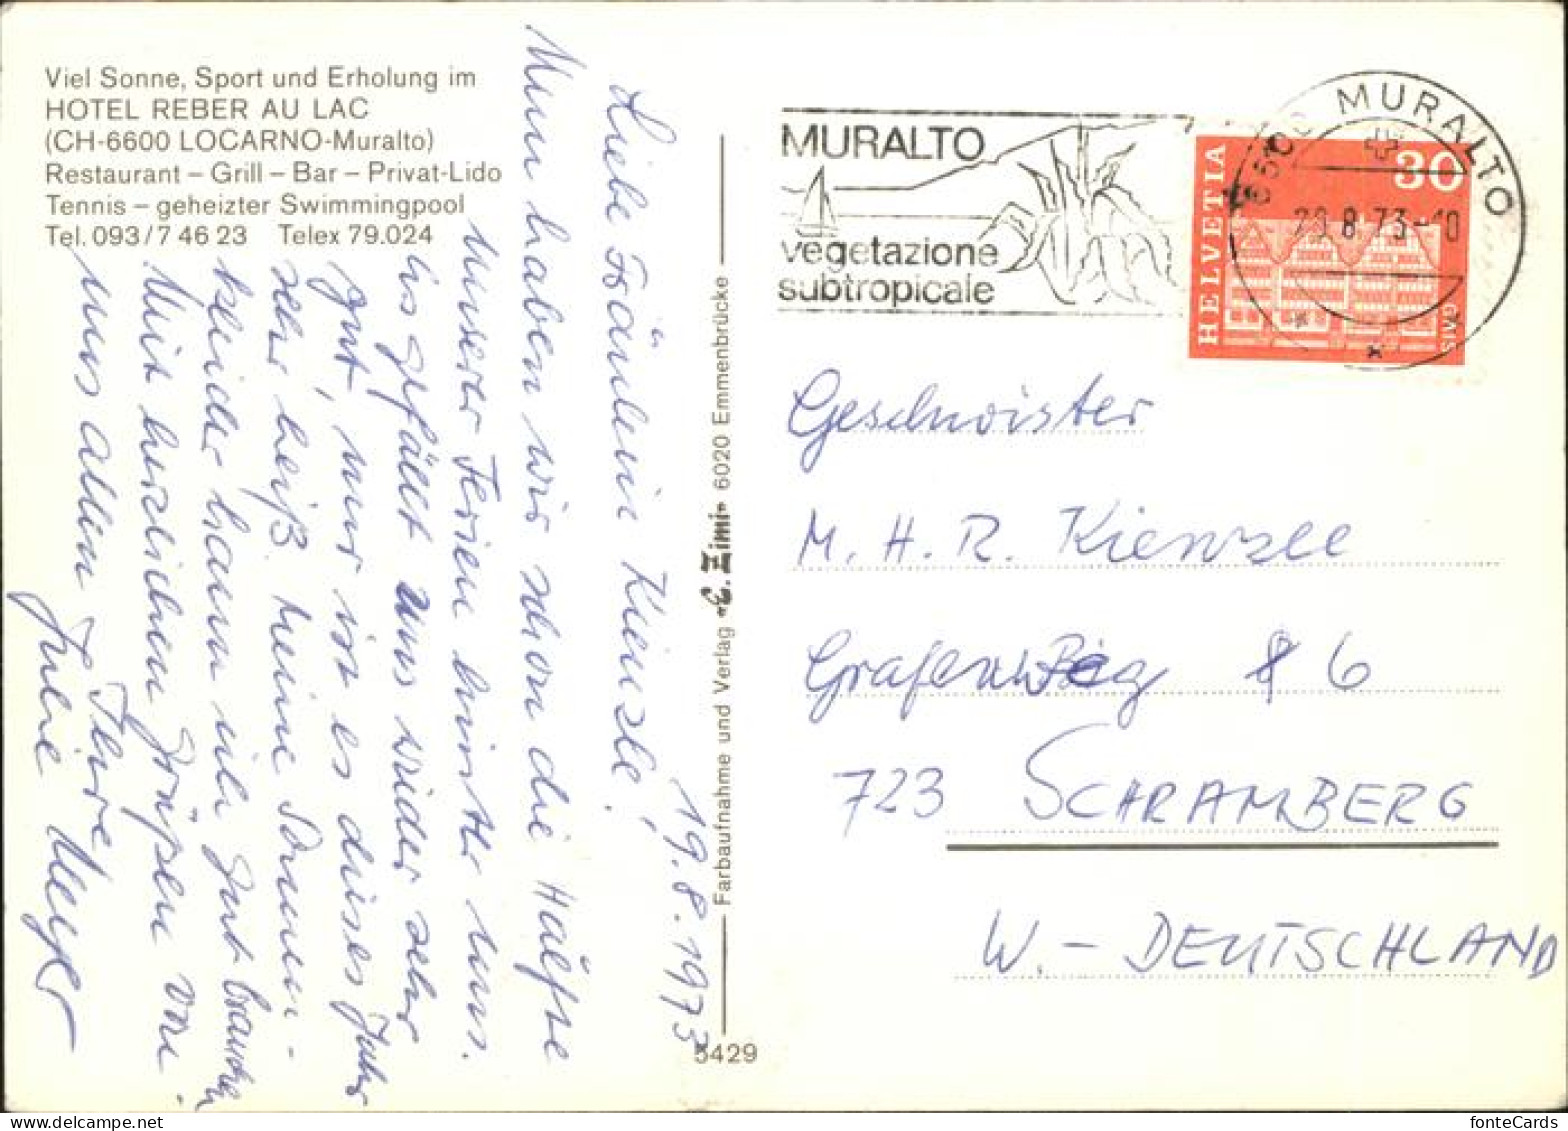 Viel Sonne, Sport und Erholung im
HOTEL REBER AU LAC
(CH-6600 LOCARNO-Muralto)
Restaurant – Grill – Bar – Privat-Lido
Tennis – geheizter Swimmingpool
Tel. 093/7 46 23 Telex 79.024
19.8.1973
Liebe Fräulein Kienzle!
Nun haben wir schon die Hälfte
unserer Ferien hinter uns.
Es gefällt uns wieder sehr
gut, nur ist es dieses Jahr
sehr heiß. Meine Sonnen-
kleider kann ich gut brauchen
Mit herzlichen Grüßen von
uns allen Ihre
Julie Meyer
Farbaufnahme und Verlag «E. Zimi» 6020 Emmenbrücke
5429
MURALTO
vegetazione
subtropicale
MURALTO
20.8.73-10
HELVETIA
30
GAIS
Geschwister
M. H. R. Kienzle
Grafenweg 6
723 SCHRAMBERG
W. - DEUTSCHLAND
fonteCards